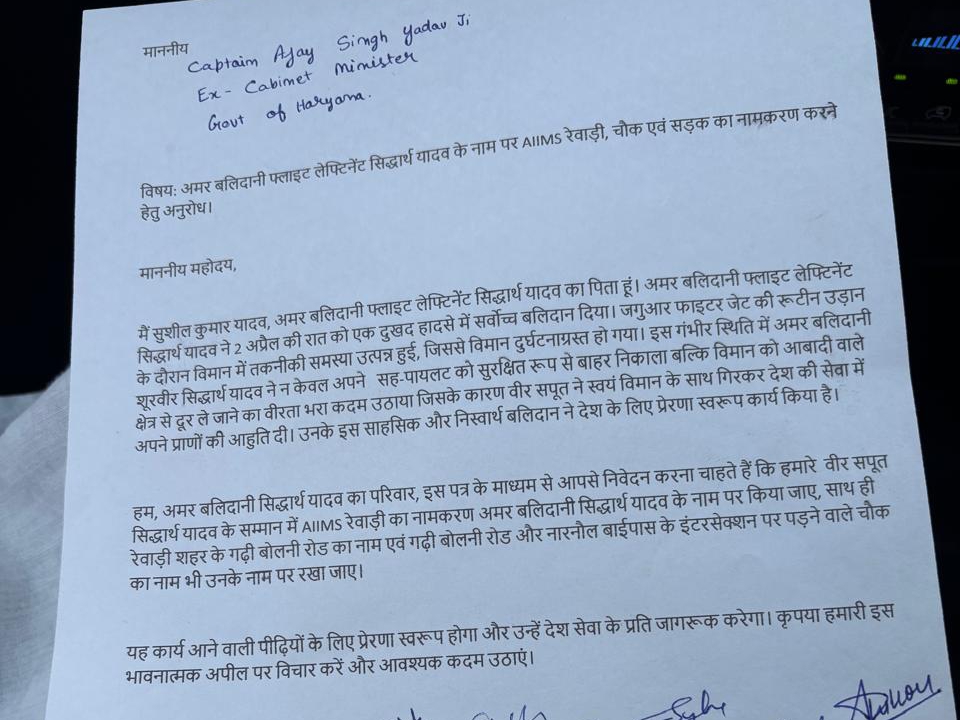 माननीय
Captain Ajay Singh Yadav Ji
Ex- Cabinet Minister
Govt of Haryana.
विषय: अमर बलिदानी फ्लाइट लेफ्टिनेंट सिद्धार्थ यादव के नाम पर AIIMS रेवाड़ी, चौक एवं सड़क का नामकरण करने
हेतु अनुरोध।
माननीय महोदय,
मैं सुशील कुमार यादव, अमर बलिदानी फ्लाइट लेफ्टिनेंट सिद्धार्थ यादव का पिता हूं। अमर बलिदानी फ्लाइट लेफ्टिनेंट
सिद्धार्थ यादव ने 2 अप्रैल की रात को एक दुखद हादसे में सर्वोच्च बलिदान दिया। जगुआर फाइटर जेट की रूटीन उड़ान
के दौरान विमान में तकनीकी समस्या उत्पन्न हुई, जिससे विमान दुर्घटनाग्रस्त हो गया। इस गंभीर स्थिति में अमर बलिदानी
शूरवीर सिद्धार्थ यादव ने न केवल अपने सह-पायलट को सुरक्षित रूप से बाहर निकाला बल्कि विमान को आबादी वाले
क्षेत्र से दूर ले जाने का वीरता भरा कदम उठाया जिसके कारण वीर सपूत ने स्वयं विमान के साथ गिरकर देश की सेवा में
अपने प्राणों की आहुति दी। उनके इस साहसिक और निस्वार्थ बलिदान ने देश के लिए प्रेरणा स्वरूप कार्य किया है।
हम, अमर बलिदानी सिद्धार्थ यादव का परिवार, इस पत्र के माध्यम से आपसे निवेदन करना चाहते हैं कि हमारे वीर सपूत
सिद्धार्थ यादव के सम्मान में AIIMS रेवाड़ी का नामकरण अमर बलिदानी सिद्धार्थ यादव के नाम पर किया जाए, साथ ही
रेवाड़ी शहर के गढ़ी बोलनी रोड का नाम एवं गढ़ी बोलनी रोड और नारनौल बाईपास के इंटरसेक्शन पर पड़ने वाले चौक
का नाम भी उनके नाम पर रखा जाए।
यह कार्य आने वाली पीढ़ियों के लिए प्रेरणा स्वरूप होगा और उन्हें देश सेवा के प्रति जागरूक करेगा। कृपया हमारी इस
भावनात्मक अपील पर विचार करें और आवश्यक कदम उठाएं।